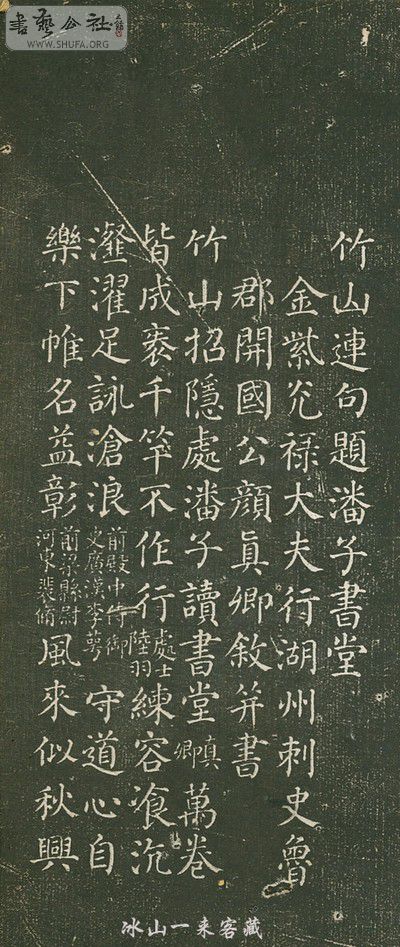 書藝公社
WWW.SHUFA.ORG
竹山連句題潘子書堂
金紫光禄大夫行湖州刺史魯
郡開國公顔真卿敘并書
竹山招隱處潘子讀書堂真卿萬卷
皆成袠千竿不作行處士陸羽練容飡沆
瀣濯足詠滄浪前殿中侍御史廣漢李萼守道心自
樂下帷名益彰前梁縣尉河東裴脩風來似秋興
冰山一来客藏